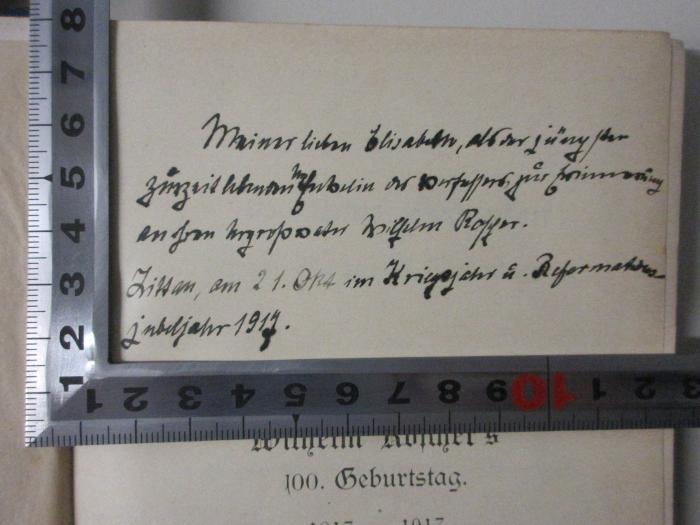 Meiner lieben Elisabeth, als der jüngsten
zurzeit lebenden Urenkelin des Verfassers, zur Erinnerung
an ihren Urgroßvater Wilhelm Roscher.
Zittau, am 21. Okt im Kriegsjahr u. Reformations-
jubeljahr 1917.
8
7
6
5
4
3
2
1
1 2 3 4 5 6 7 8 9 10 1 2 3
Wilhelm Roscher's
100. Geburtstag.
1817 1917